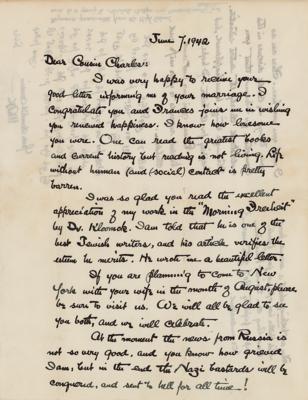 June 7, 1942
Dear Cousin Charles:
I was very happy to receive your
good letter informing me of your marriage. I
congratulate you and Frances joins me in wishing
you renewed happiness. I know how lonesome
you were. One can read the greatest books
and current history but reading is not living. Life
without human (and (social) contact is pretty
barren.
I was so glad you read the excellent
appreciation of my work in the "Morning Freiheit"
by Dr. I am told that he is one of the
best Jewish writers, and his article verifies the
esteem he merits. He wrote me a beautiful letter.
If you are planning to come to New
York with your wife in the month of August, please
be sure to visit us. We will all be glad to see
you both, and we will celebrate.
At the moment the news from Russia is
not so very good, and you know how grieved
I am, but in the end the Nazi bastards will be
conquered, and sent to hell for all time!